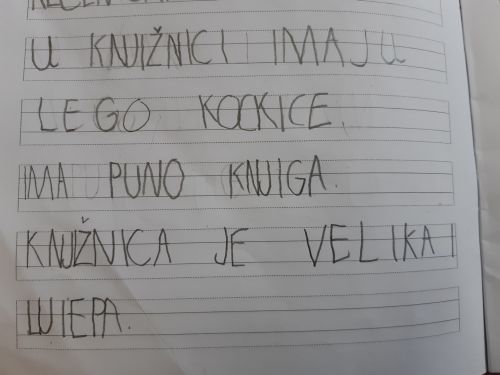 U KNJIŽNICI IMAJU
LEGO KOCKICE.
IMA PUNO KNJIGA.
KNJIŽNICA JE VELIKA I
LJIEPA.